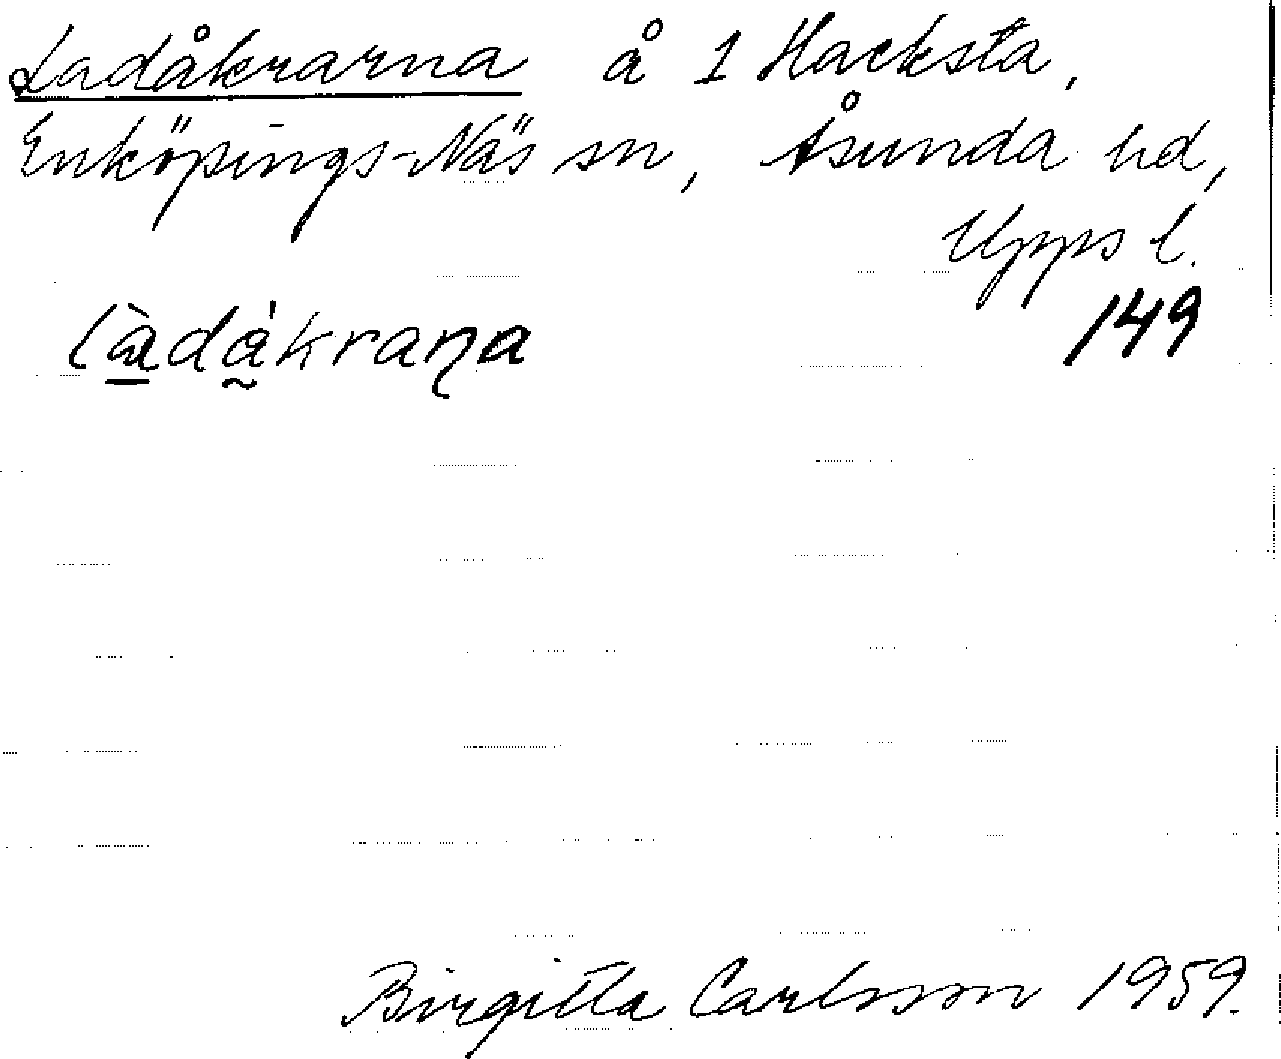 Ladåkrarna å 1 Hacksta,
Enköpings-Näs sn, Åsunda hd,
Upps l.
làdåkraɳa 149
Birgitta Carlsson 1959.